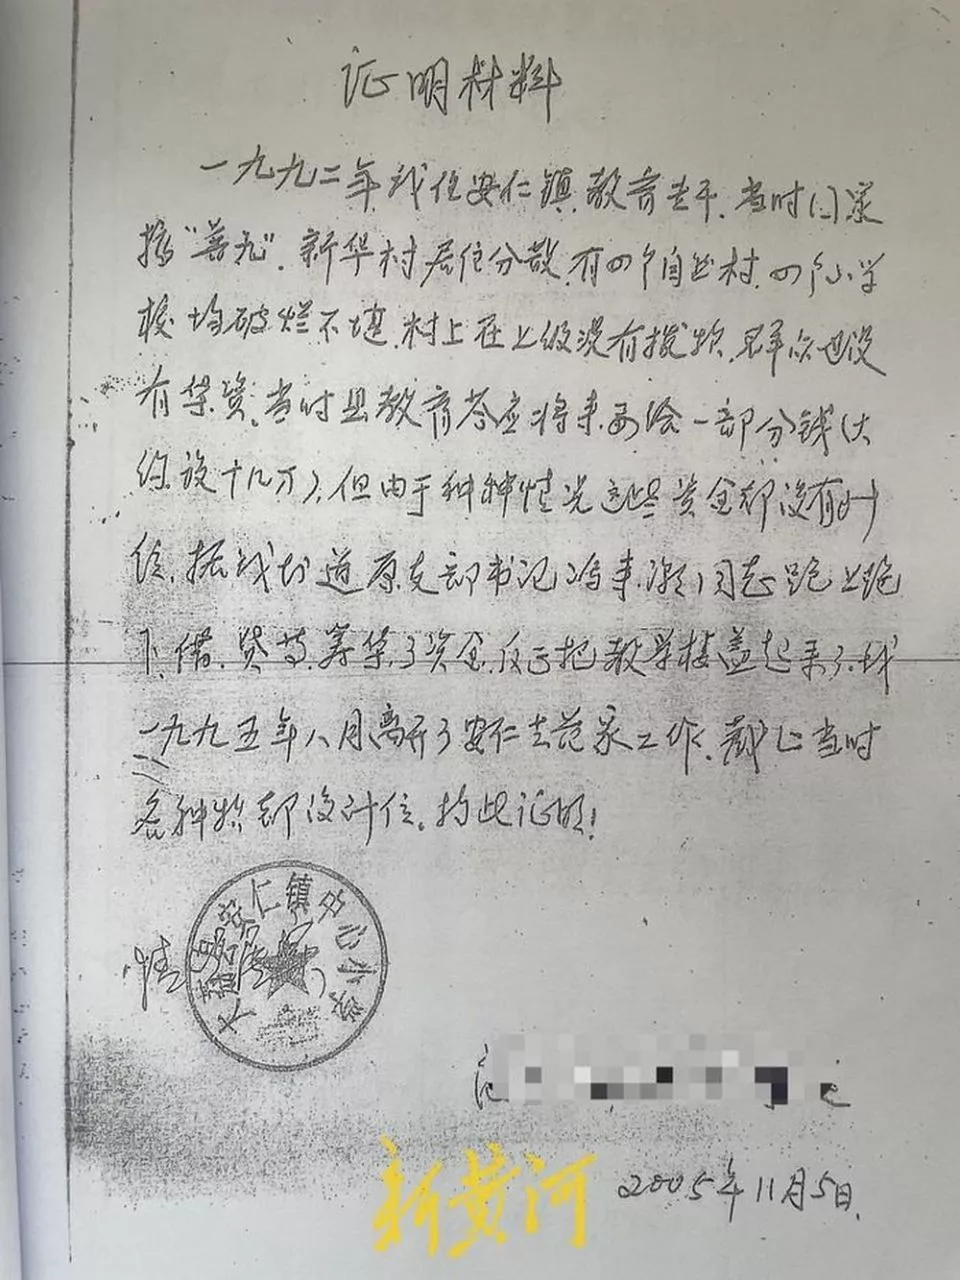 证明材料
一九九二年我任安仁镇教育专干.当时国家
搞“普九”.新华村居住分散.有四个自然村.四个小学
校均破烂不堪.村上在上级没有拨款.群众也没
有集资.当时县教育答应将来要给一部分钱(大
约说十几万).但由于种种情况这些资金都没有到
位.据我知道原支部书记冯来
同志跑上跑
下.借.贷等.筹集了资金.反正把教学楼盖起来了.我
一九九五年八月离开了安仁去范家工作.截止当时
各种款都没到位。特此证明!
情
安仁镇中心小学
2005年11月5日.
新黄河